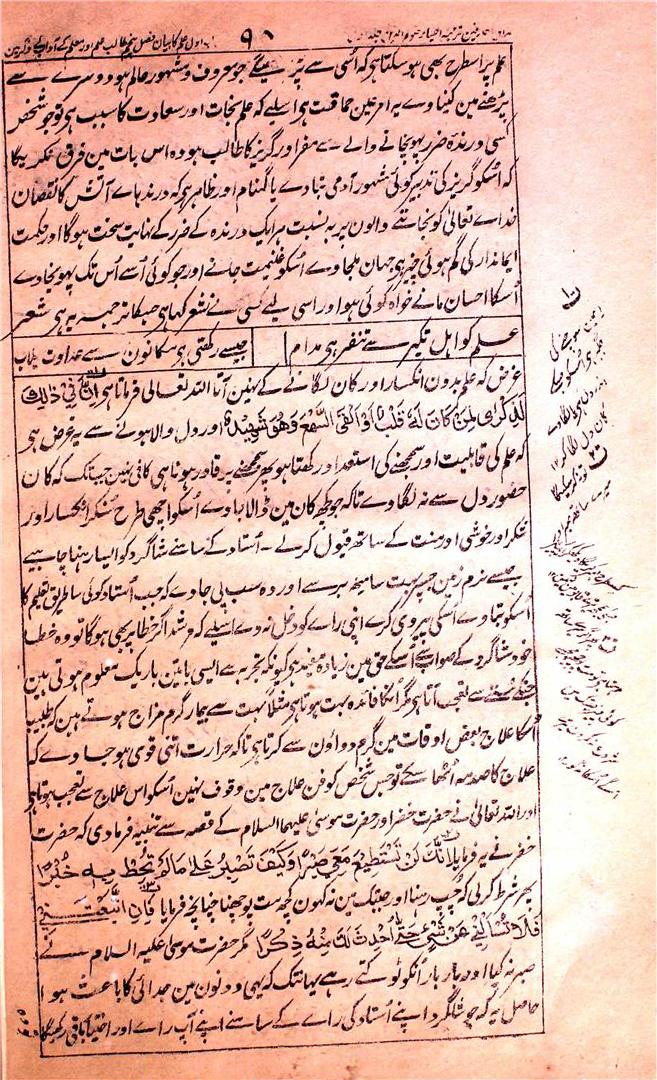 ۹۰
علم پر اسطرح بھی ہو سکتا ہی کہ اُسی سے پڑہیگے جو معروف و مشہور عالم ہو دوسرے سے
پڑھنے مین کنیاوے یہ امر عین حماقت ہی اسلیے کہ علم نجات اور سعادت کا سبب ہی تو جو شخص
کسی درندہ ضرر پہونچانے والے سے مفر اور گریز کا طالب ہو وہ اس بات مین فرق نکریگا
کہ اُسکو گریز کی تدبیر کوئی مشہور آدمی بتادے یا گمنام اور ظاہر ہی کہ درندہاے آتش کا نقصان
خداے تعالیٰ کو نجاننے والون پر بہ نسبت ہر ایک درندہ کے ضرر کے نہایت سخت ہوگا اور حکمت
ایماندار کی گم ہوئی چیز ہی جہان ملجاوے اُسکو غنیمت جانے اور جو کوئی اُسے اُس تک پہونچاوے
اُسکا احسان مانے خواہ کوئی ہو اور اسی لیے کسی نے شعر کہا ہی جسکا ترجمہ یہ ہی شعر
علم کو اہل تکبر سے تنفر ہی مدام | جیسے رکھتی ہی مکانون سے عداوت سیلاب
غرض کہ علم بدون انکسار اور کان لگانے کے نہین آتا اللہ تعالی فرماتا ہی اِنَّ فِیْ ذٰلِکَ
لَذِکْرٰی لِمَنْ کَانَ لَہٗ قَلْبٌ اَوْ اَلْقَی السَّمْعَ وَھُوَ شَھِیْدٌ اور دل والا ہونے سے یہ غرض ہی
کہ علم کی قابلیت اور سمجھنے کی استعداد رکھتا ہو پھر سمجھنے پر قادر ہونا ہی کافی نہین جبتک کہ کان
حضور دل سے نہ لگاوے تاکہ جو کچھ کان مین ڈالا جاوے اُسکو اچھی طرح سُنکر انکسار اور
شکر اور خوشی اور منت کے ساتھ قبول کرلے ۔ اُستاد کے سامنے شاگرد کو ایسا رہنا چاہیے
جیسے نرم زمین جسپر بہت سا مینھ برسے اور وہ سب پی جاوے کہ جب اُستاد کوئی سا طریق تعلیم کا
اُسکو بتاوے اُسکی پیروی کرے اپنی راے کو دخل نہ دے اسلیے کہ مرشد اگر خطا پر بھی ہوگا تو وہ خطا
خود شاگرد کے صواب سے اُسکے حق مین زیادہ مفید ہی کیونکہ تجربہ سے ایسی باتین باریک معلوم ہوتی ہین
جنکے سُننے سے تعجب آتا ہی مگر اُنکا فائدہ بہت ہوتا ہی مثلاً بہت سے بیمار گرم مزاج ہوتے ہین کہ طبیب
اُنکا علاج بعض اوقات مین گرم دواؤن سے کرتا ہی تاکہ حرارت اتنی قوی ہو جاوے کہ
علاج کا صدمہ اُٹھا سکے تو جس شخص کو فن علاج مین وقوف نہین اُسکو اس علاج سے تعجب ہوتا ہی
اور اللہ تعالیٰ نے حضرت خضر اور حضرت موسیٰ علیہما السلام کے قصہ سے تنبیہ فرمادی کہ حضرت
خضر نے یہ فرمایا اِنَّکَ لَنْ تَسْتَطِیْعَ مَعِیَ صَبْرًا وَکَیْفَ تَصْبِرُ عَلٰی مَا لَمْ تُحِطْ بِہٖ خُبْرًا
پھر شرط کرلی کہ چپ رہنا اور جبتک مین نہ کہون کچھ مت پوچھنا چنانچہ فرمایا فَاِنِ اتَّبَعْتَنِیْ
فَلَا تَسْأَلْنِیْ عَنْ شَیْئٍ حَتّٰی اُحْدِثَ لَکَ مِنْہُ ذِکْرًا مگر حضرت موسیٰ علیہ السلام نے
صبر نہ کیا اور بار بار اُنکو ٹوکتے رہے یہانتک کہ یہی دونون مین جدائی کا باعث ہوا
حاصل یہ کہ جو شاگرد اپنے اُستاد کی راے کے سامنے اپنے آپ راے اور اختیار باقی رکھیگا